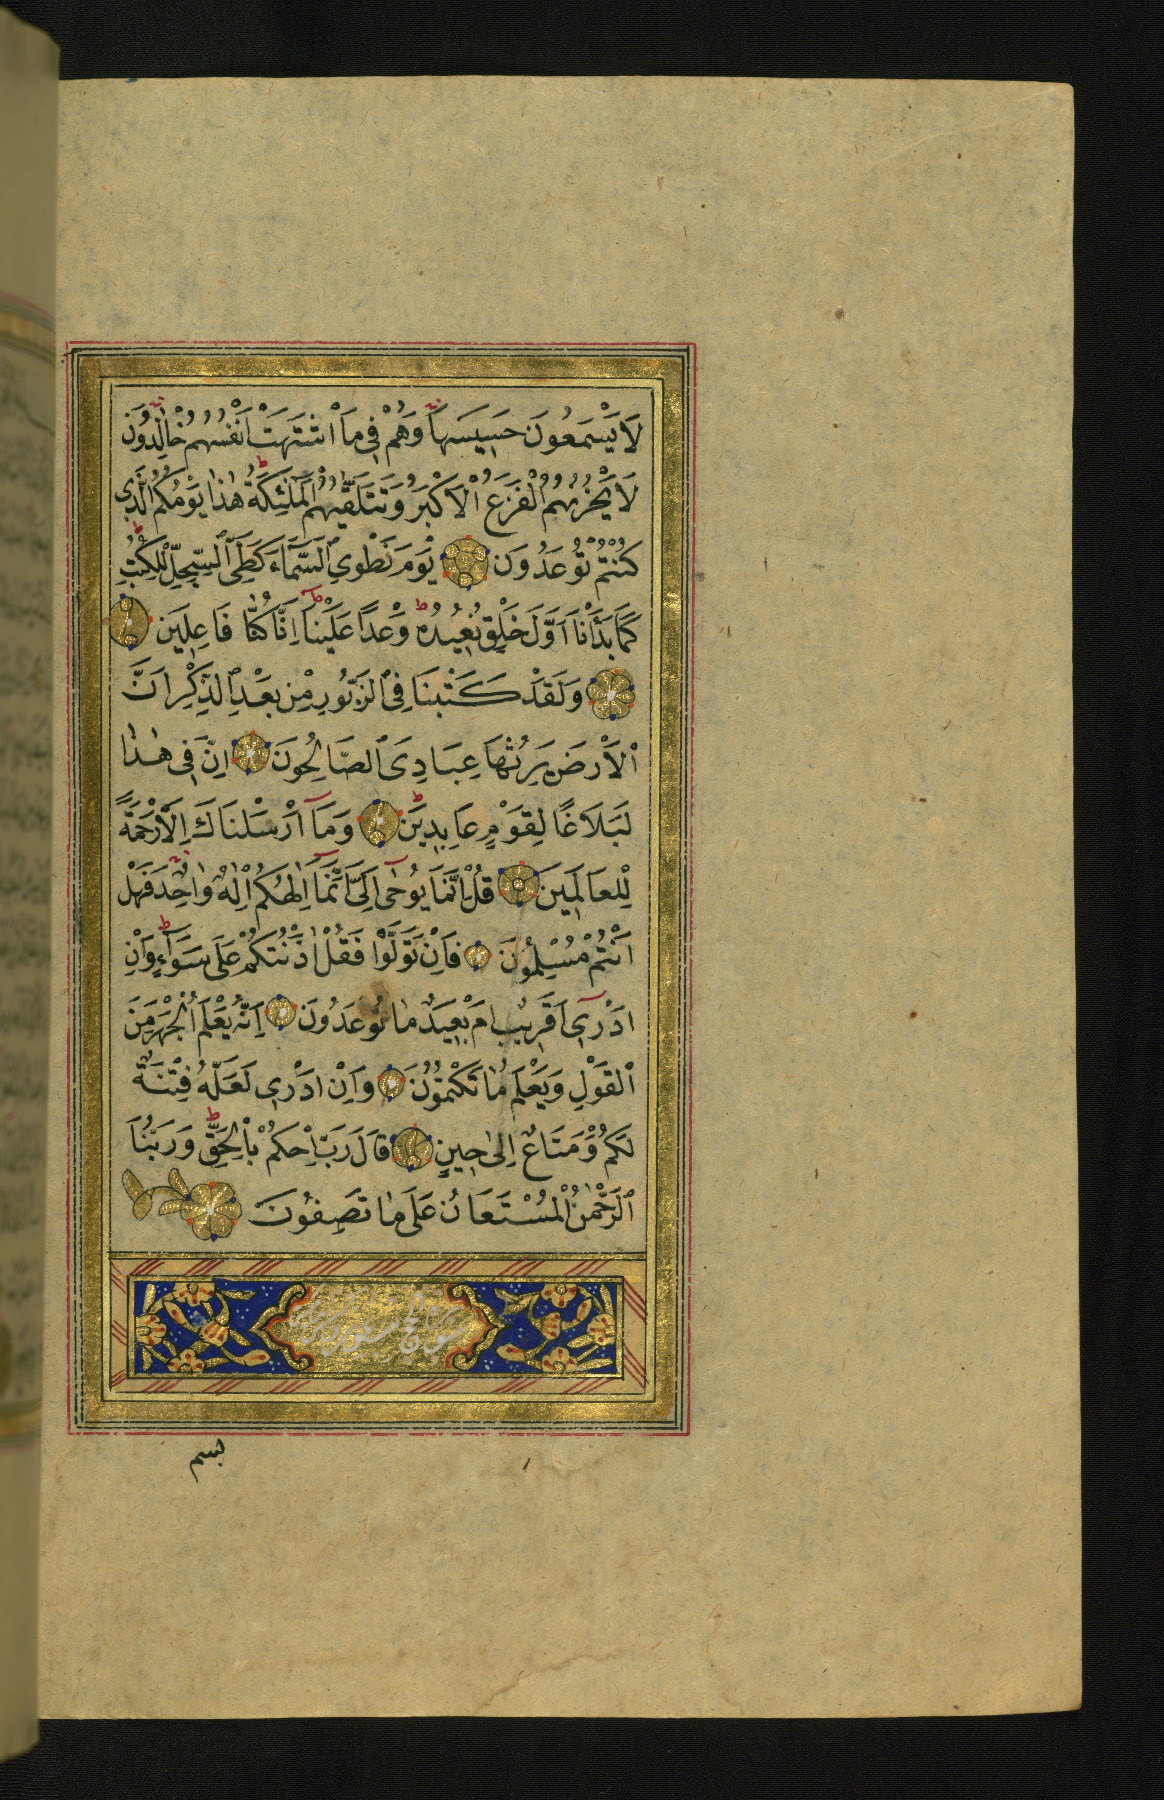 لَا يَسْمَعُونَ حَسِيسَهَا وَهُمْ فِى مَا اشْتَهَتْ اَنْفُسُهُمْ خَالِدُونَ
لَا يَحْزُنُهُمُ الْفَزَعُ الْاَكْبَرُ وَتَتَلَقّٰيهُمُ الْمَلٰئِكَةُ هٰذَا يَوْمُكُمُ الَّذِى
كُنْتُمْ تُوعَدُونَ يَوْمَ نَطْوِى السَّمَآءَ كَطَىِّ السِّجِلِّ لِلْكُتُبِ
كَمَا بَدَأْنَا اَوَّلَ خَلْقٍ نُعِيدُهُ وَعْدًا عَلَيْنَا اِنَّا كُنَّا فَاعِلِينَ
وَلَقَدْ كَتَبْنَا فِى الزَّبُورِ مِنْ بَعْدِ الذِّكْرِ اَنَّ
الْاَرْضَ يَرِثُهَا عِبَادِىَ الصَّالِحُونَ اِنَّ فِى هٰذَا
لَبَلَاغًا لِقَوْمٍ عَابِدِينَ وَمَآ اَرْسَلْنَاكَ اِلَّا رَحْمَةً
لِلْعَالَمِينَ قُلْ اِنَّمَا يُوحٰى اِلَىَّ اَنَّمَآ اِلٰهُكُمْ اِلٰهٌ وَاحِدٌ فَهَلْ
اَنْتُمْ مُسْلِمُونَ فَاِنْ تَوَلَّوْا فَقُلْ اٰذَنْتُكُمْ عَلٰى سَوَآءٍ وَاِنْ
اَدْرِىٓ اَقَرِيبٌ اَمْ بَعِيدٌ مَا تُوعَدُونَ اِنَّهُ يَعْلَمُ الْجَهْرَ مِنَ
الْقَوْلِ وَيَعْلَمُ مَا تَكْتُمُونَ وَاِنْ اَدْرِى لَعَلَّهُ فِتْنَةٌ
لَكُمْ وَمَتَاعٌ اِلٰى حِينٍ قَالَ رَبِّ احْكُمْ بِالْحَقِّ وَرَبُّنَا
الرَّحْمٰنُ الْمُسْتَعَانُ عَلٰى مَا تَصِفُونَ
بسم